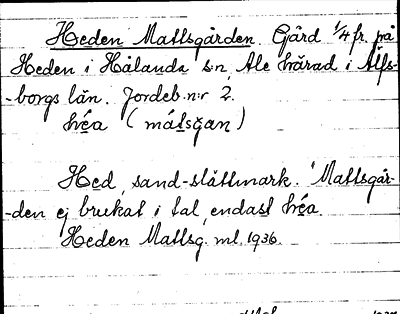 Heden Mattsgården. Gård 1/4 fr. på
Heden i Hålanda s:n, Ale härad i Älfs-
-borgs län. Jordeb. n:r 2.
héa (mátsgan)
Hed, sand-slåttmark. Mattsgår-
-den ej brukat i tal, endast héa.
Heden Mattsg. ml. 1936.